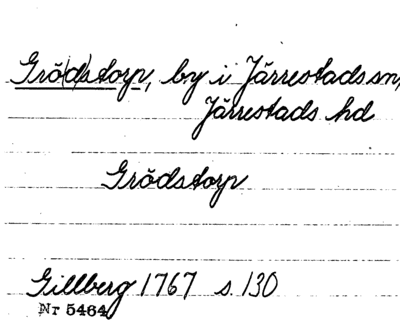 Grö(d)storp, by i Järrestads sn,
Järrestads hd
Grödstorp
Gillberg 1767 s. 130
Nr 5464